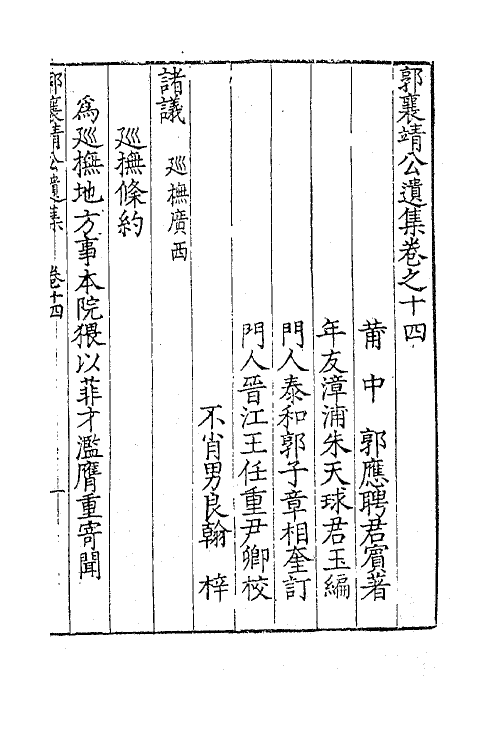 郭襄靖公遺集卷之十四
莆中　郭應聘君賓著
年友漳浦朱天球君玉編
門人泰和郭子章相奎訂
門人晉江王任重尹卿校
不肖男良翰　梓
諸議　廵撫廣西
廵撫條約
爲廵撫地方事本院猥以菲才濫膺重寄聞
郭襄靖公遺集　卷十四　一